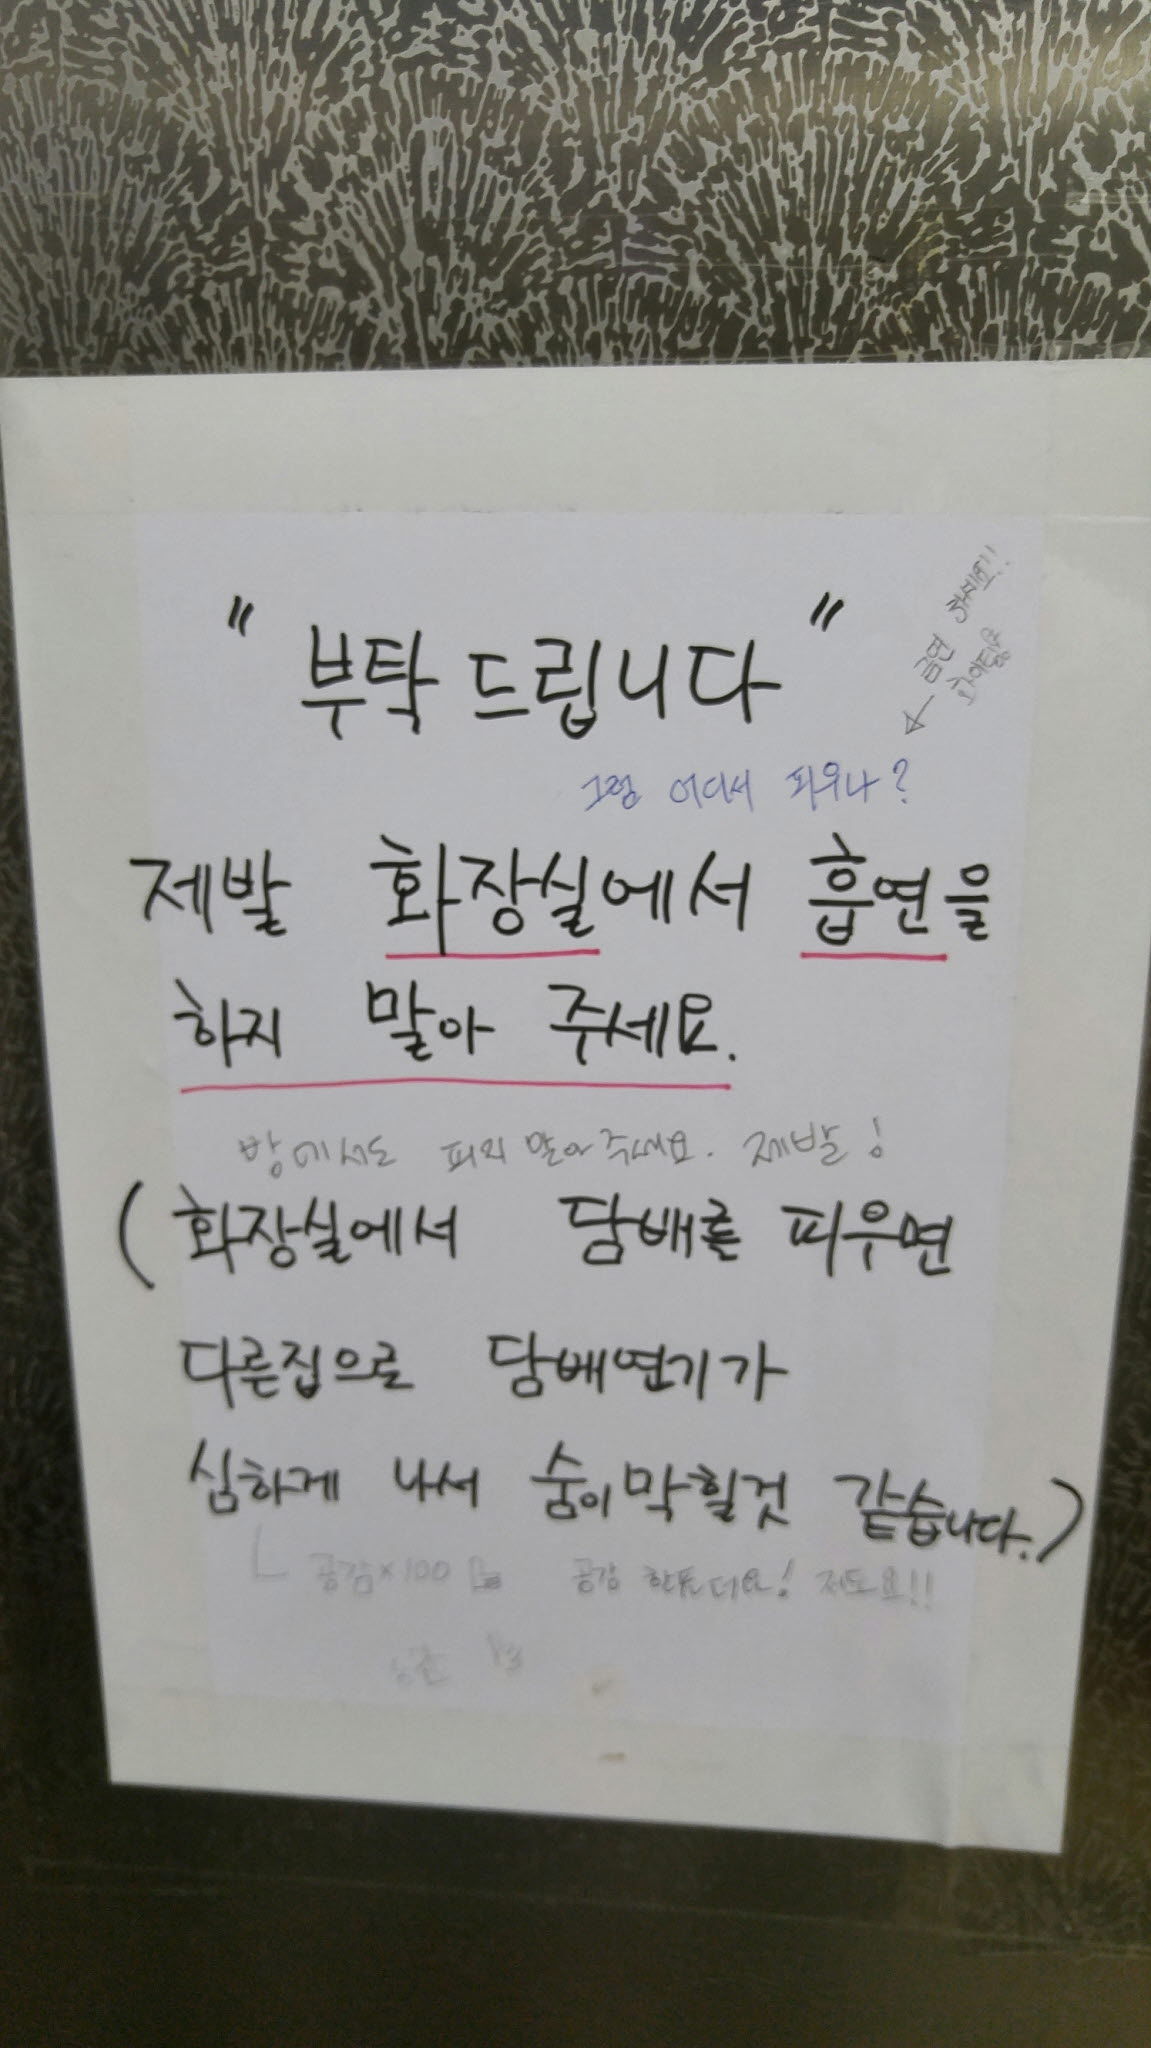 금연 하세요!!
화이팅
"부탁 드립니다"
그럼 어디서 피우나?
제발 화장실에서 흡연을
하지 말아 주세요.
방에서도 피지 말아주세요. 제발!
(화장실에서 담배를 피우면
다른집으로 담배연기가
심하게 나서 숨이 막힐것 같습니다.)
공감×100 공감 한표더요! 저도요!!